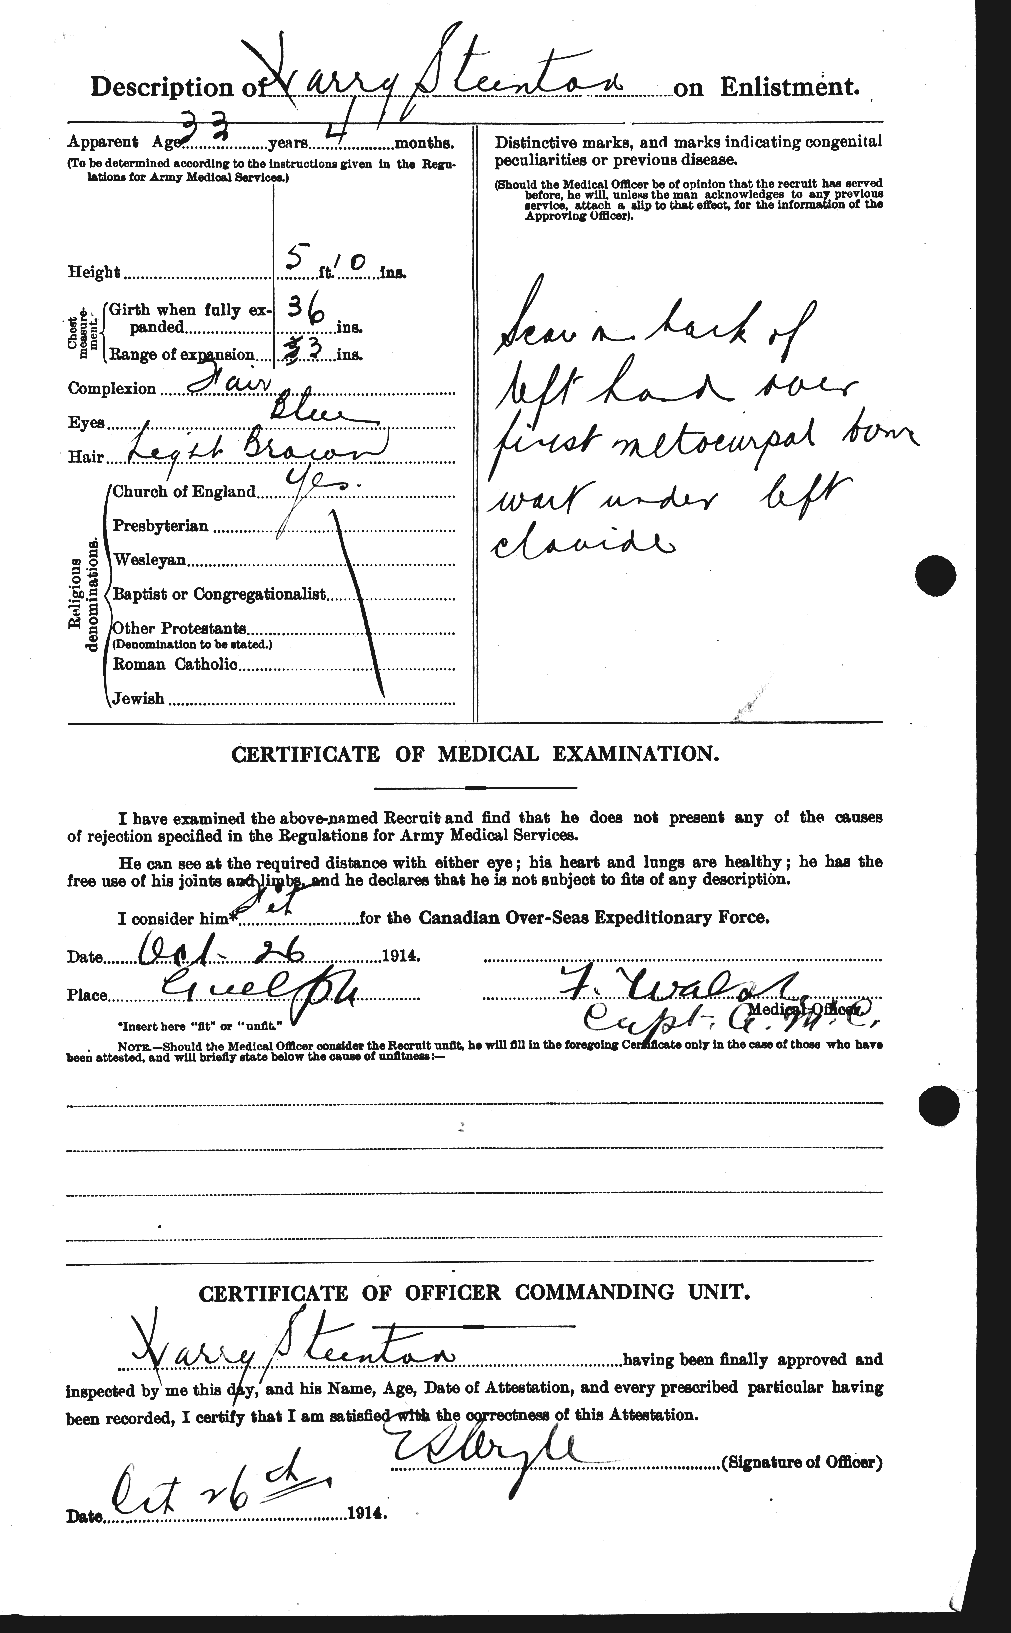 Description of Harry Steenton on Enlistment.
Apparent Age 33 years 4 months.
(To be determined according to the instructions given in the Regu-
lations for Army Medical Services.)
Height 5 ft. 10 ins.
Chest measure-ment.
Girth when fully ex-
panded 36 ins.
Range of expansion 3 ins.
Complexion Fair
Eyes Blue
Hair Light Brown
Religious denominations.
Church of England Yes.
Presbyterian
Wesleyan
Baptist or Congregationalist
Other Protestants
(Denomination to be stated.)
Roman Catholic
Jewish
Distinctive marks, and marks indicating congenital
peculiarities or previous disease.
(Should the Medical Officer be of opinion that the recruit has served
before, he will, unless the man acknowledges to any previous
service, attach a slip to that effect, for the information of the
Approving Officer).
Scar on back of
left hand over
first metocurpal bone
wart under left
clavide
CERTIFICATE OF MEDICAL EXAMINATION.
I have examined the above-named Recruit and find that he does not present any of the causes
of rejection specified in the Regulations for Army Medical Services.
He can see at the required distance with either eye; his heart and lungs are healthy; he has the
free use of his joints and limbs, and he declares that he is not subject to fits of any description.
I consider him* Fit for the Canadian Over-Seas Expeditionary Force.
Date Oct. 26 1914.
Place Guelph
F. Walsh
Medical Officer.
Capt. A.M.C.
*Insert here "fit" or "unfit."
NOTE.—Should the Medical Officer consider the Recruit unfit, he will fill in the foregoing Certificate only in the case of those who have
been attested, and will briefly state below the cause of unfitness:—
CERTIFICATE OF OFFICER COMMANDING UNIT.
Harry Steenton having been finally approved and
inspected by me this day, and his Name, Age, Date of Attestation, and every prescribed particular having
been recorded, I certify that I am satisfied with the correctness of this Attestation.
(Signature of Officer)
Date Oct 26th 1914.